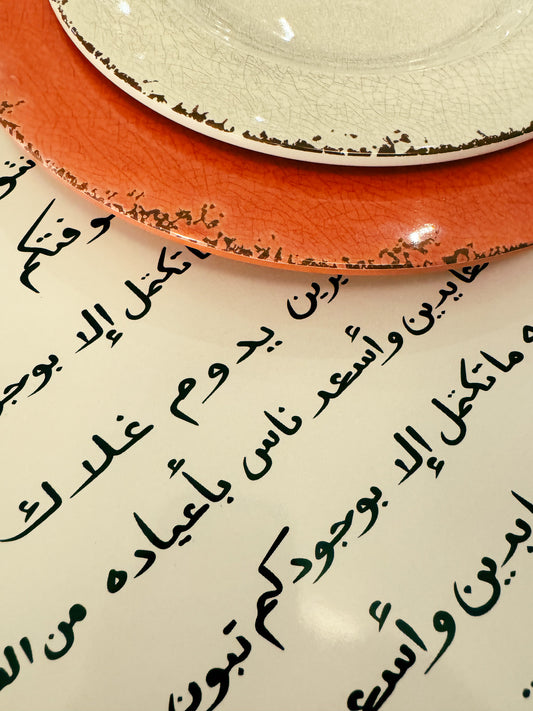 وقتكم
ما تكتمل إلا بوجو
يدوم غلاك
عايدين وأسعد ناس بأعياده من
ما تكتمل إلا بوجودكم تبون
يدين وأسع